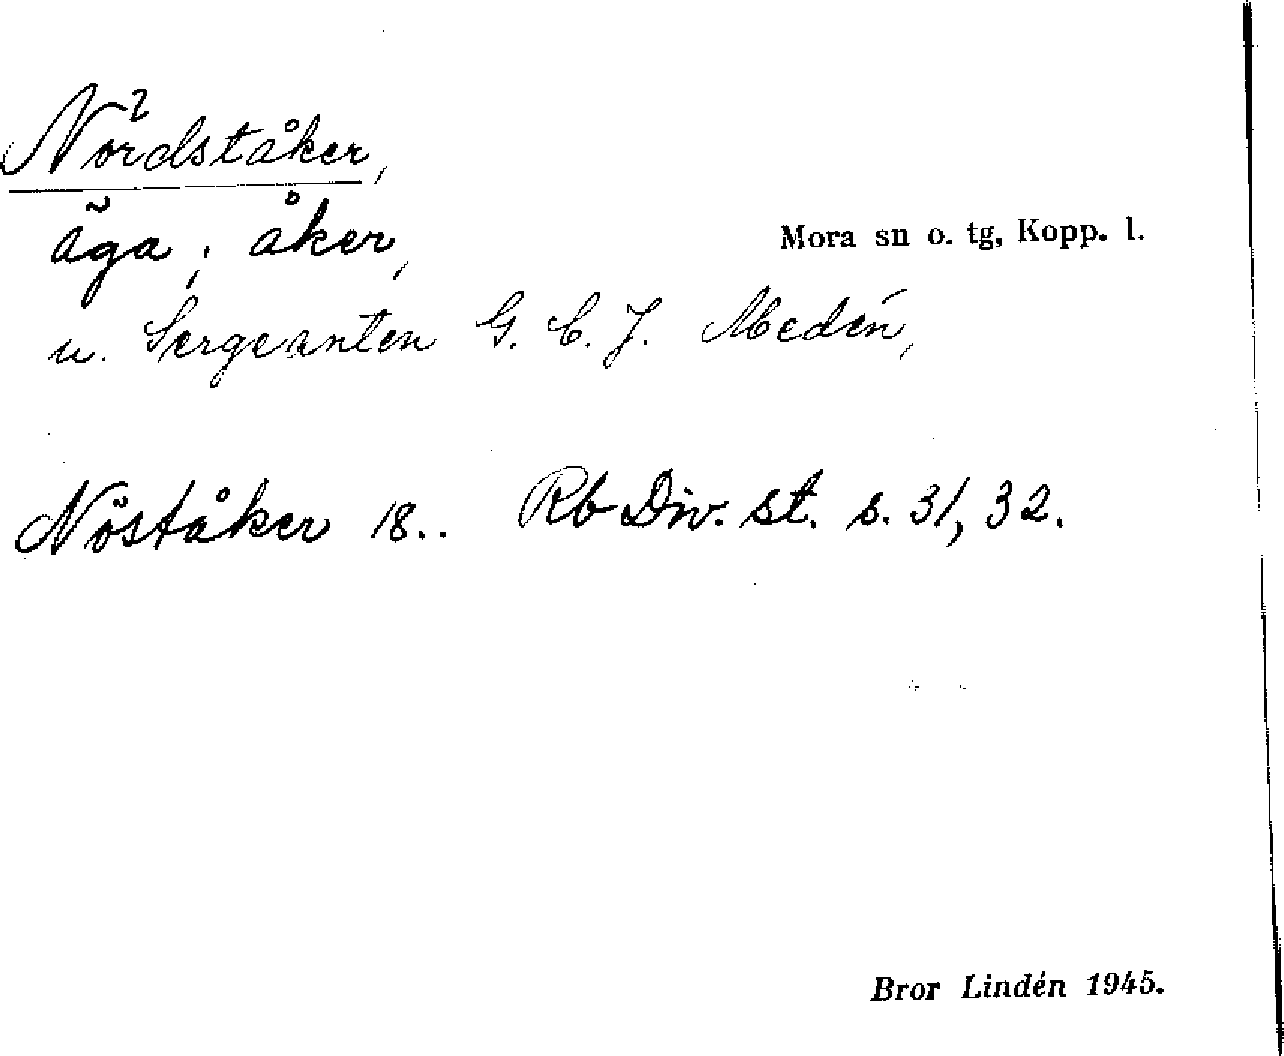 Nordstå̊ker,
äga; åker,
Mora sn o. tg, Kopp. l.
u. Sergeanten G. C. J. Medén,
Nöståker 18.. Rb Div. st. s. 31, 32.
Bror Lindén 1945.